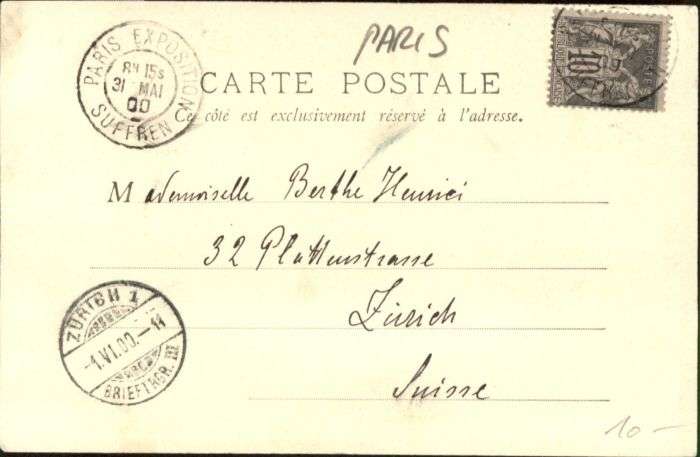 PARIS
PARIS EXPOSITION
8M 15S
31 MAI
00
SUFFREN
10
CARTE POSTALE
Ce côté est exclusivement réservé à l'adresse.
Mademoiselle Berthe Henrici
32 Plattenstrasse
Zürich
Suisse
ZÜRICH 1
-1.VI.00.-11
BRIEFTRGR. III
10-